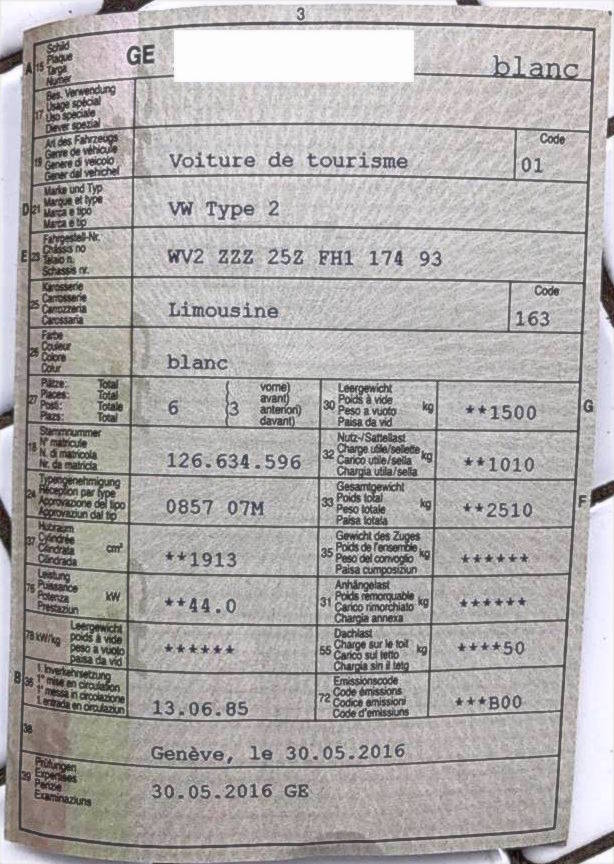 3
A 15 Schild
Plaque
Targa
Numer
GE
blanc
17 Bes. Verwendung
Usage spécial
Uso speciale
Diever spezial
19 Art des Fahrzeugs
Genre de véhicule
Genere di veicolo
Gener dal vehichel
Voiture de tourisme
Code
01
D 21 Marke und Typ
Marque et type
Marca e tipo
Marca e tip
VW Type 2
E 23 Fahrgestell-Nr.
Châssis no
Telaio n.
Schassis nr.
WV2 ZZZ 25Z FH1 174 93
25 Karosserie
Carrosserie
Carrozzeria
Carossaria
Limousine
Code
163
26 Farbe
Couleur
Colore
Colur
blanc
27 Plätze: Total
Places: Total
Posti: Totale
Plazs: Total
6 (3 vorne)
avant)
anteriori)
davant)
30 Leergewicht
Poids à vide
Peso a vuoto
Paisa da vid
kg
**1500
G
18 Stammnummer
N° matricule
N. di matricola
Nr. da matricla
126.634.596
32 Nutz-/Sattellast
Charge utile/sellette
Carico utile/sella
Chargia utila/sella
kg
**1010
24 Typengenehmigung
Réception par type
Approvazione del tipo
Approvaziun dal tip
0857 07M
33 Gesamtgewicht
Poids total
Peso totale
Paisa totala
kg
**2510
F
37 Hubraum
Cylindrée
Cilindrata
Cilindrada
cm³
**1913
35 Gewicht des Zuges
Poids de l'ensemble
Peso del convoglio
Paisa cumposiziun
kg
******
76 Leistung
Puissance
Potenza
Prestaziun
kW
**44.0
31 Anhängelast
Poids remorquable
Carico rimorchiato
Chargia annexa
kg
******
78 kW/kg
Leergewicht
poids à vide
peso a vuoto
paisa da vid
******
55 Dachlast
Charge sur le toit
Carico sul tetto
Chargia sin il tetg
kg
****50
B 36 1. Inverkehrsetzung
1re mise en circulation
1a messa in circolazione
1. entrada en circulaziun
13.06.85
72 Emissionscode
Code émissions
Codice emissioni
Code d'emissiuns
***B00
38
Genève, le 30.05.2016
39 Prüfungen
Expertises
Perizie
Examinaziuns
30.05.2016 GE